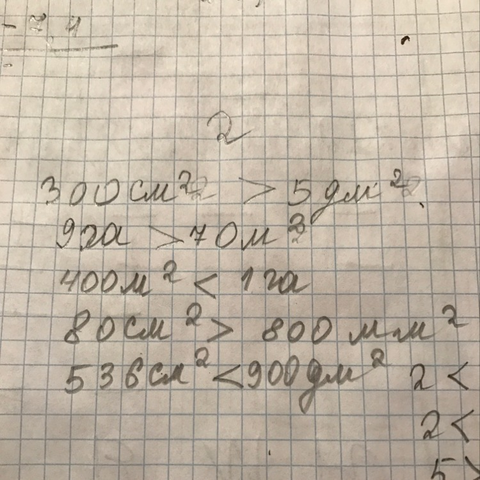 - 7, 1
2
300 см² > 5 дм²
9 га > 70 м²
400 м² < 1 га
80 см² > 800 мм²
536 см² < 900 дм²
2 <
2 <
5 >